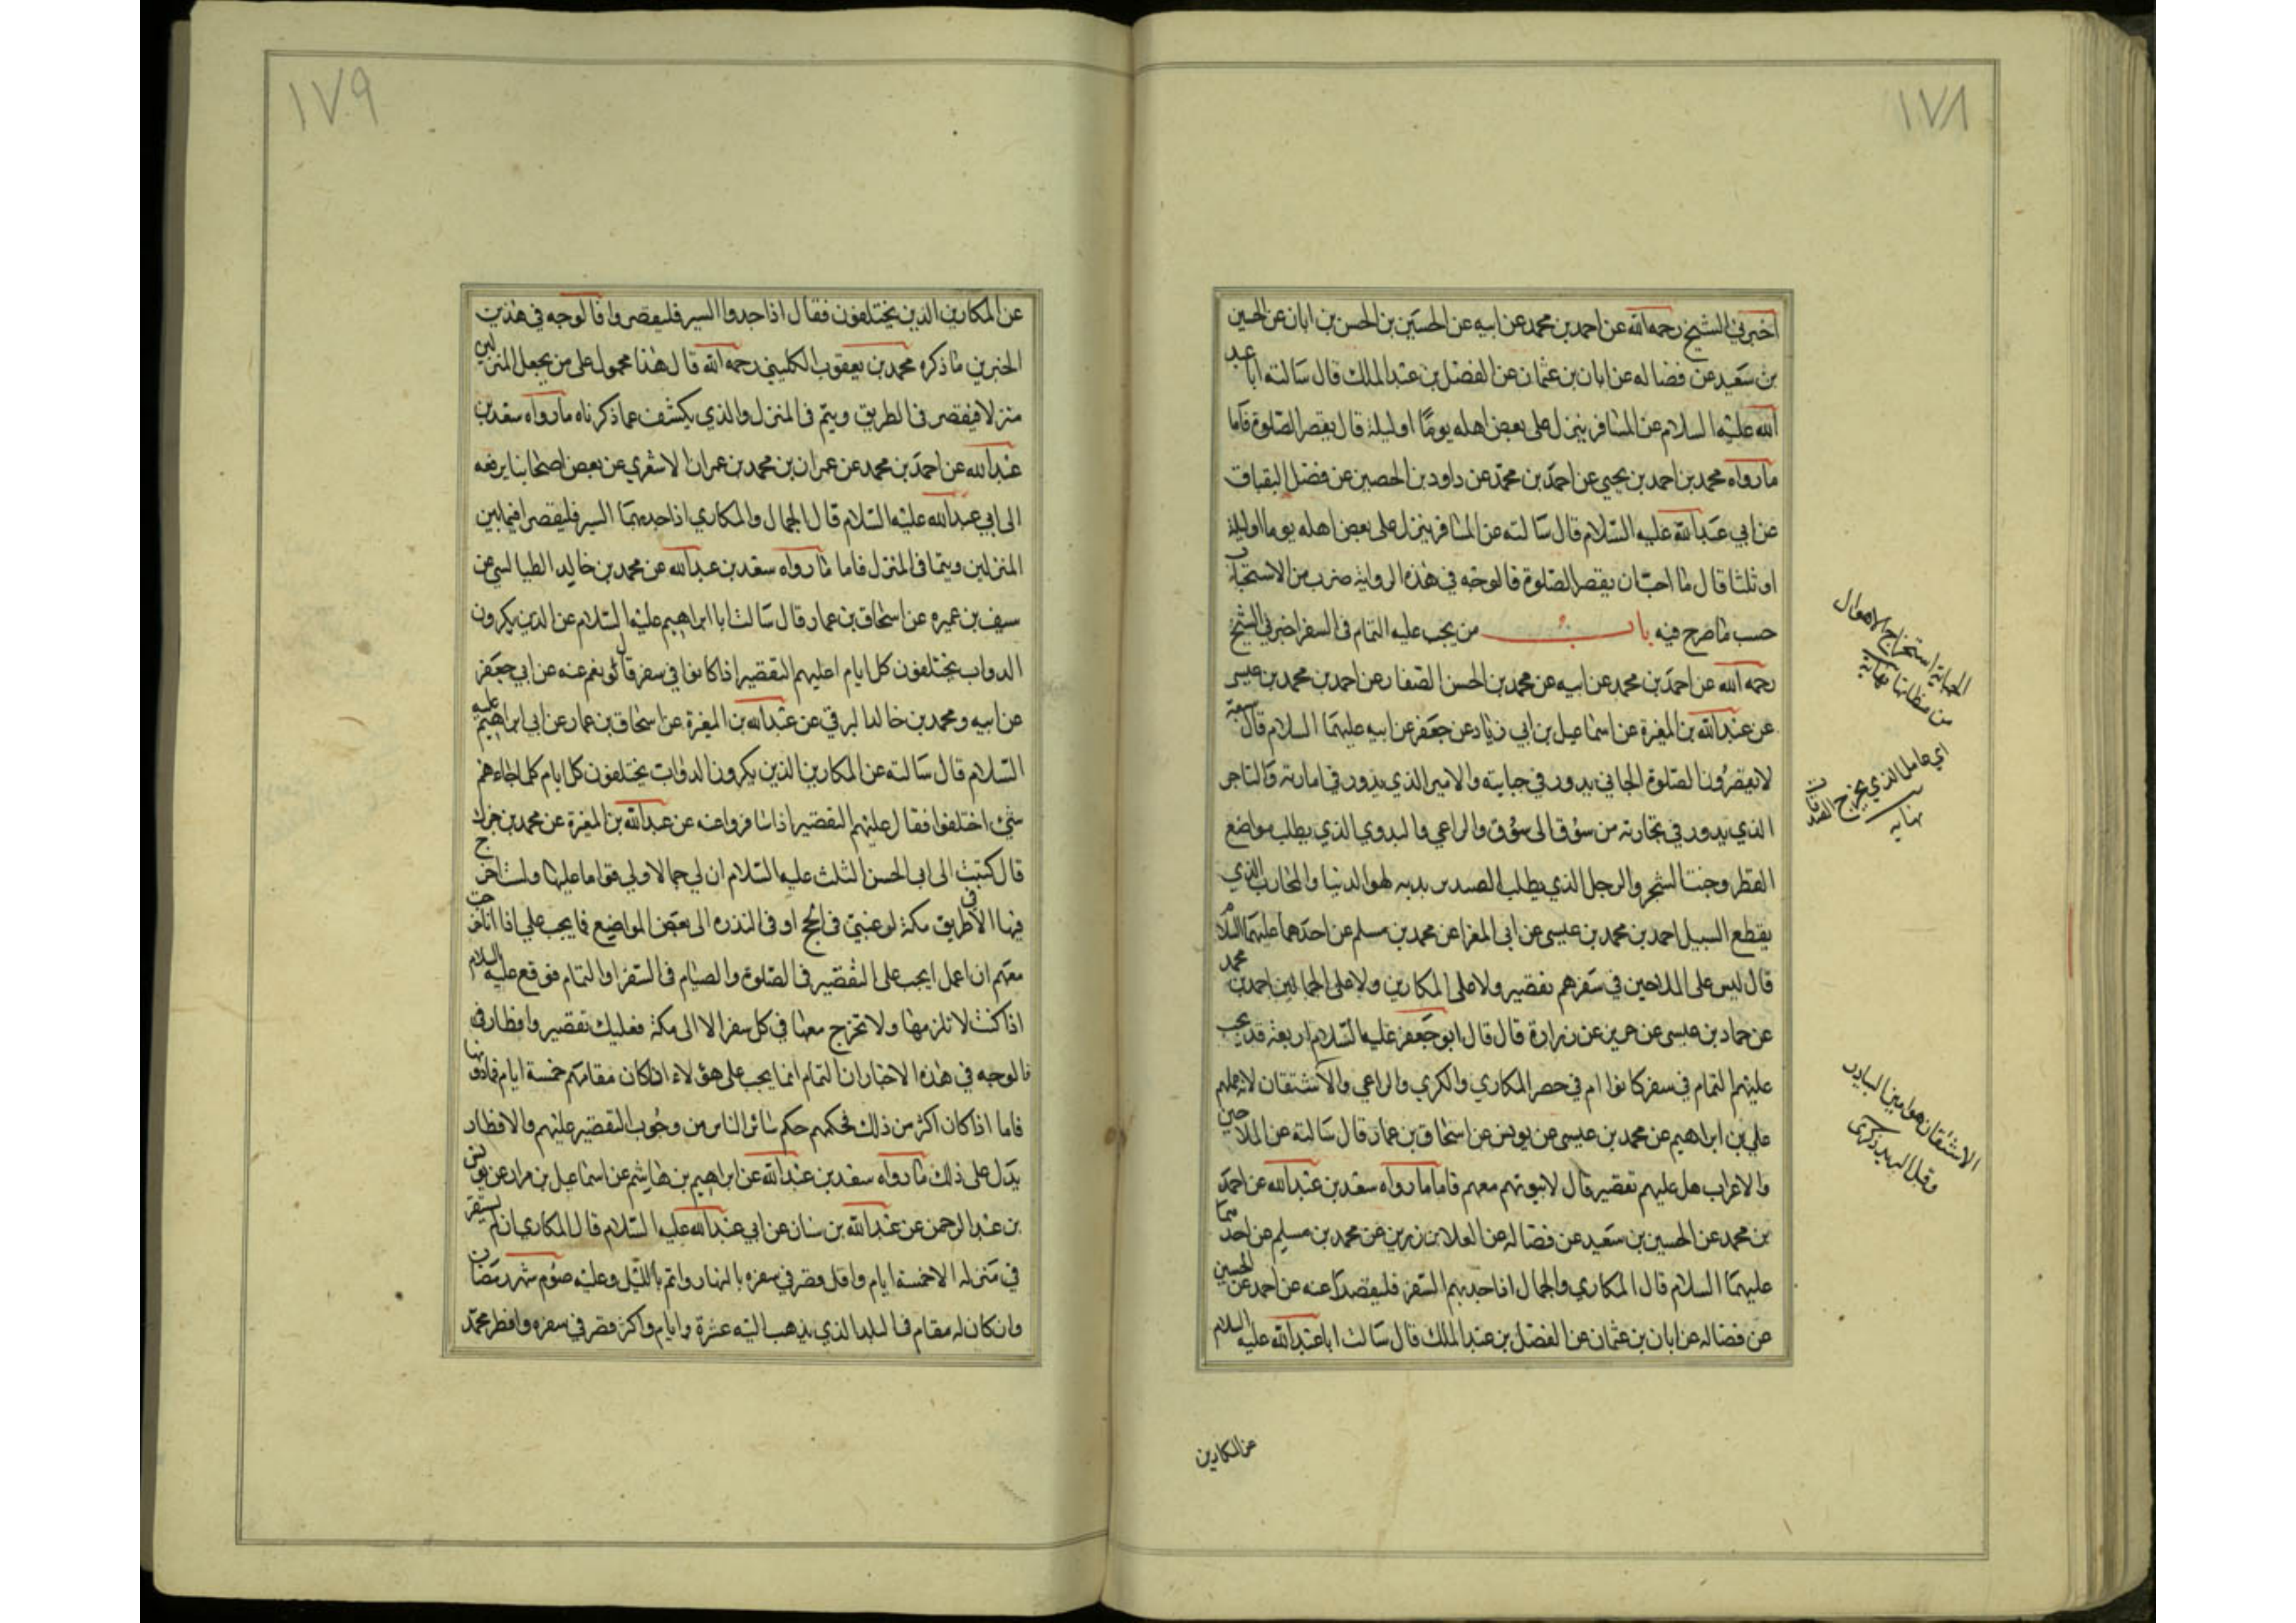 ١٧٨
اخبرني الشيخ رحمه الله عن احمد بن محمد عن ابيه عن الحسين بن الحسن بن ابان عن الحسين
بن سعيد عن فضاله عن ابان بن عثمان عن الفضل بن عبد الملك قال سالته ابا عبد
الله عليه السلام عن المسافر ينزل على بعض اهله يوما او ليلة قال يقصر الصلوة فاما
ما رواه محمد بن احمد بن يحيى عن احمد بن محمد عن داود بن الحصين عن فضل البقباق
عن ابي عبد الله عليه السلام قال سالته عن المسافر ينزل على بعض اهله يوما اوليلة
او ثلثا قال ما احب ان يقصر الصلوة فالوجه في هذه الرواية ضرب من الاستحباب
حسب ما صرح فيه باب من يجب عليه التمام في السفر اخبرني الشيخ
رحمه الله عن احمد بن محمد عن ابيه عن محمد بن الحسن الصفار عن احمد بن محمد بن عيسى
عن عبد الله بن المغيرة عن اسماعيل بن ابي زياد عن جعفر عن ابيه عليهما السلام قال سبعة
لا يقصرون الصلوة الجابي يدور في جبايته والامير الذي يدور في امارته والتاجر
الذي يدور في تجارته من سوق الى سوق والراعي والبدوي الذي يطلب مواضع
القطر ومنبت الشجر والرجل الذي يطلب الصيد يريد به لهو الدنيا والمحارب الذي
يقطع السبيل احمد بن محمد بن عيسى عن ابى المغرا عن محمد بن مسلم عن احدهما عليهما السلام
قال ليس على الملاحين في سفرهم تقصير ولا على المكارين ولا على الجمالين احمد بن محمد
عن حماد بن عيسى عن حريز عن زرارة قال قال ابو جعفر عليه السلام اربعة قد يجب
عليهم التمام في سفر كانوا ام في حضر المكاري والكري والراعي والاشتقان لانه عملهم
علي بن ابراهيم عن محمد بن عيسى عن يونس عن اسحاق بن عمار قال سالته عن الملاحين
والاعراب هل عليهم تقصير قال لا بيوتهم معهم فاما ما رواه سعد بن عبد الله عن احمد
بن محمد عن الحسين بن سعيد عن فضاله عن العلا بن رزين عن محمد بن مسلم عن احدهما
عليهما السلام قال المكاري والجمال اذا جد بهم السفر فليقصرا عنه عن احمد عن الحسين
عن فضاله عن ابان بن عثمان عن الفضل بن عبد الملك قال سالت ابا عبد الله عليه السلام
عن المكارين
الجباية استخراج الاموال
من مظانها نهاية
اي عامل الذي يخرج الصدقات
نهايه
الاشتقان هو امين البيادر
وقيل البريد ذكرى
١٧٩
عن المكارين الذين يختلفون فقال اذا جدوا السير فليقصروا فالوجه في هذين
الخبرين ما ذكره محمد بن يعقوب الكليني رحمه الله قال هذا محمول على من يجعل المنزلين
منزلا فيقصر في الطريق ويتم في المنزل والذي يكشف عما ذكرناه ما رواه سعد بن
عبد الله عن احمد بن محمد عن عمران بن محمد بن عمران الاشعري عن بعض اصحابنا يرفعه
الى ابي عبد الله عليه السلام قال الجمال والمكاري اذا جد بهما السير فليقصرا فيما بين
المنزلين ويتما في المنزل فاما ما رواه سعد بن عبد الله عن محمد بن خالد الطيالسي عن
سيف بن عميره عن اسحاق بن عمار قال سالت ابا ابراهيم عليه السلام عن الذين يكرون
الدواب يختلفون كل ايام اعليهم التقصير اذا كانوا في سفر قال نعم عنه عن ابي جعفر
عن ابيه ومحمد بن خالد البرقي عن عبد الله بن المغيرة عن اسحاق بن عمار عن ابي ابراهيم عليه
السلام قال سالته عن المكارين الذين يكرون الدواب يختلفون كل ايام كلما جاءهم
شيء اختلفوا فقال عليهم التقصير اذا سافروا عنه عن عبد الله بن المغيرة عن محمد بن جزك
قال كتبت الى ابى الحسن الثلث عليه السلام ان لي جمالا ولي قواما عليها ولست اخرج
فيها الا في طريق مكة لرغبتي في الحج او في الندره الى بعض المواضع فما يجب علي اذا انا خرجت
معهم ان اعمل ايجب على التقصير في الصلوة والصيام في السفر او التمام فوقع عليه السلام
اذا كنت لا تلزمها ولا تخرج معها في كل سفر الا الى مكة فعليك تقصير وافطار
فالوجه في هذه الاخبار ان التمام انما يجب على هؤلاء اذا كان مقامهم خمسة ايام فما دونها
فاما اذا كان اكثر من ذلك فحكمهم حكم سائر الناس من وجوب التقصير عليهم والافطار
يدل على ذلك ما رواه سعد بن عبد الله عن ابراهيم بن هاشم عن اسماعيل بن مرار عن يونس
بن عبد الرحمن عن عبد الله بن سنان عن ابي عبد الله عليه السلام قال المكاري ان لم يستقر
في منزله الا خمسة ايام واقل قصر في سفره بالنهار واتم بالليل وعليه صوم شهر رمضان
وان كان له مقام في البلد الذي يذهب اليه عشرة وايام واكثر قصر في سفره وافطر محمد